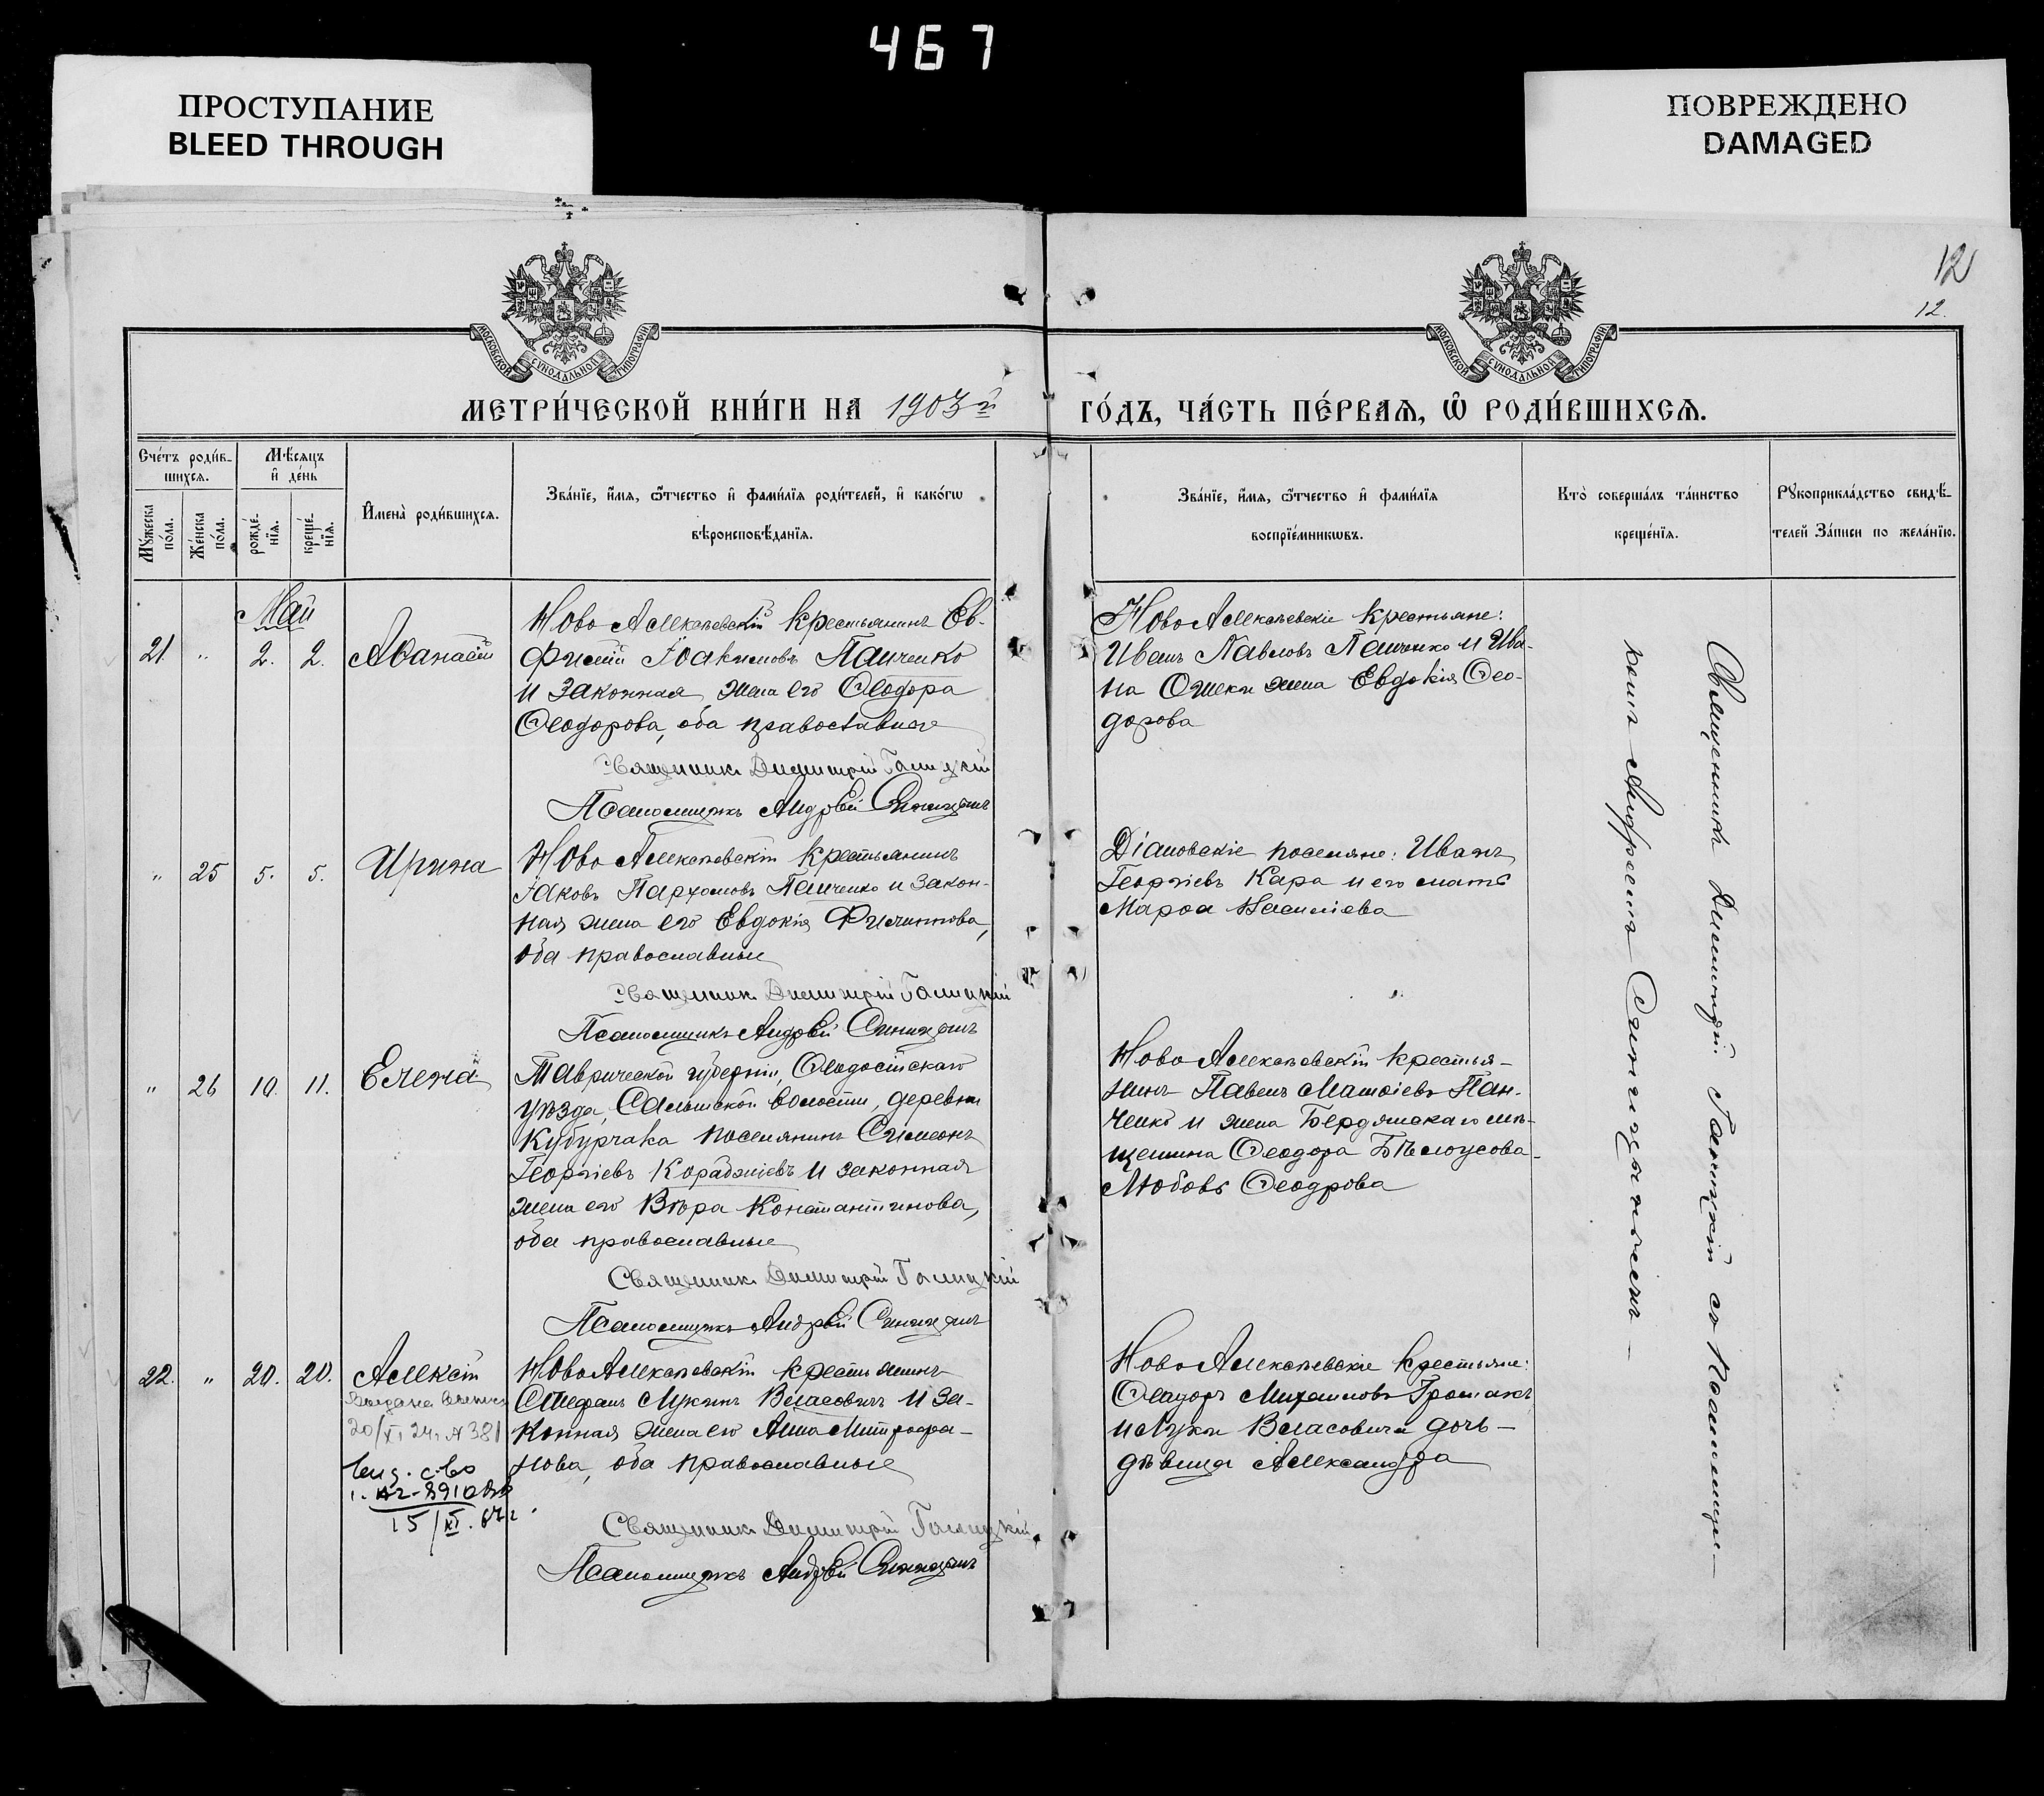 467
ПРОСТУПАНИЕ
BLEED THROUGH
ПОВРЕЖДЕНО
DAMAGED
12
12.
МОСКОВСКОЙ СѴНОДАЛЬНОЙ ТИПОГРАФІИ
МОСКОВСКОЙ СѴНОДАЛЬНОЙ ТИПОГРАФІИ
МЕТРИ́ЧЕСКОЙ КНИ́ГИ НА 1903й
ГО́ДЪ, ЧА́СТЬ ПЕ́РВАѦ, Ѽ РОДИ́ВШИХСѦ.
Сче́тъ роди́в-
шихсѧ.
Мѣ́сяцъ
и҆ де́нь
Мꙋ́жеска по́ла.
Же́нска по́ла.
рожде́-нїѧ.
креще́-нїѧ.
И҆мена̀ роди́вшихсѧ.
Зва́нїе, и҆́мѧ, ѻ҆́тчество и҆ фами́лїѧ роди́телей, и҆ како́гѡ
вѣроисповѣ́данїѧ.
Зва́нїе, и҆́мѧ, ѻ҆́тчество и҆ фами́лїѧ
воспрїе́мникѡвъ.
Кто̀ соверша́лъ та́инство
креще́нїѧ.
Рꙋкоприкла́дство свидѣ́-
телей За́писи по жела́нїю.
Май
21. " 2. 2. Аѳанасій
Ново Алексѣевскій крестьянинъ Ев-
фимій Іоакимовъ Панченко
и законная жена его Ѳеодора
Ѳеодорова, оба православные
Священникъ Димитрій Галицкій
Псаломщикъ Андрей Синицынъ
Ново Алексѣевскіе крестьяне:
Иванъ Павловъ Панченко и Ива-
на жена Евдокія Ѳео-
дорова
" 25 5. 5. Ирина
Ново Алексѣевскій крестьянинъ
Іаковъ Пархомовъ Панченко и закон-
ная жена его Евдокія Филиппова,
оба православные
Священникъ Димитрій Галицкій
Псаломщикъ Андрей Синицынъ
Діановскіе поселяне: Иванъ
Георгіевъ Кара и его мать
Марѳа Васильева
" 26 10. 11. Елена
Таврической губерніи, Ѳеодосійскаго
уѣзда, волости, деревни
Кубурчака поселянинъ Симеонъ
Георгіевъ Кораджіевъ и законная
жена его Вѣра Константинова,
оба православные
Священникъ Димитрій Галицкій
Псаломщикъ Андрей Синицынъ
Ново Алексѣевскій крестья-
нинъ Павелъ Матѳіевъ Пан-
ченко и жена Бердянскаго мѣ-
щанина Ѳеодора Бѣлоусова
Любовь Ѳеодорова
22. " 20. 20. Алексій
Выдана выпись
20/XI 24г № 381
15/XI.
Ново Алексѣевскій крестьянинъ
Стефанъ Лукинъ Власовичъ и за-
конная жена его Анна Митрофа-
нова, оба православные
Священникъ Димитрій Галицкій
Псаломщикъ Андрей Синицынъ
Ново Алексѣевскіе крестьяне:
Ѳеодоръ Михаиловъ
и Луки Власовича дочь
дѣвица Александра
Священникъ Димитрій Галицкій съ Псаломщи-
комъ Андреемъ Синицынымъ